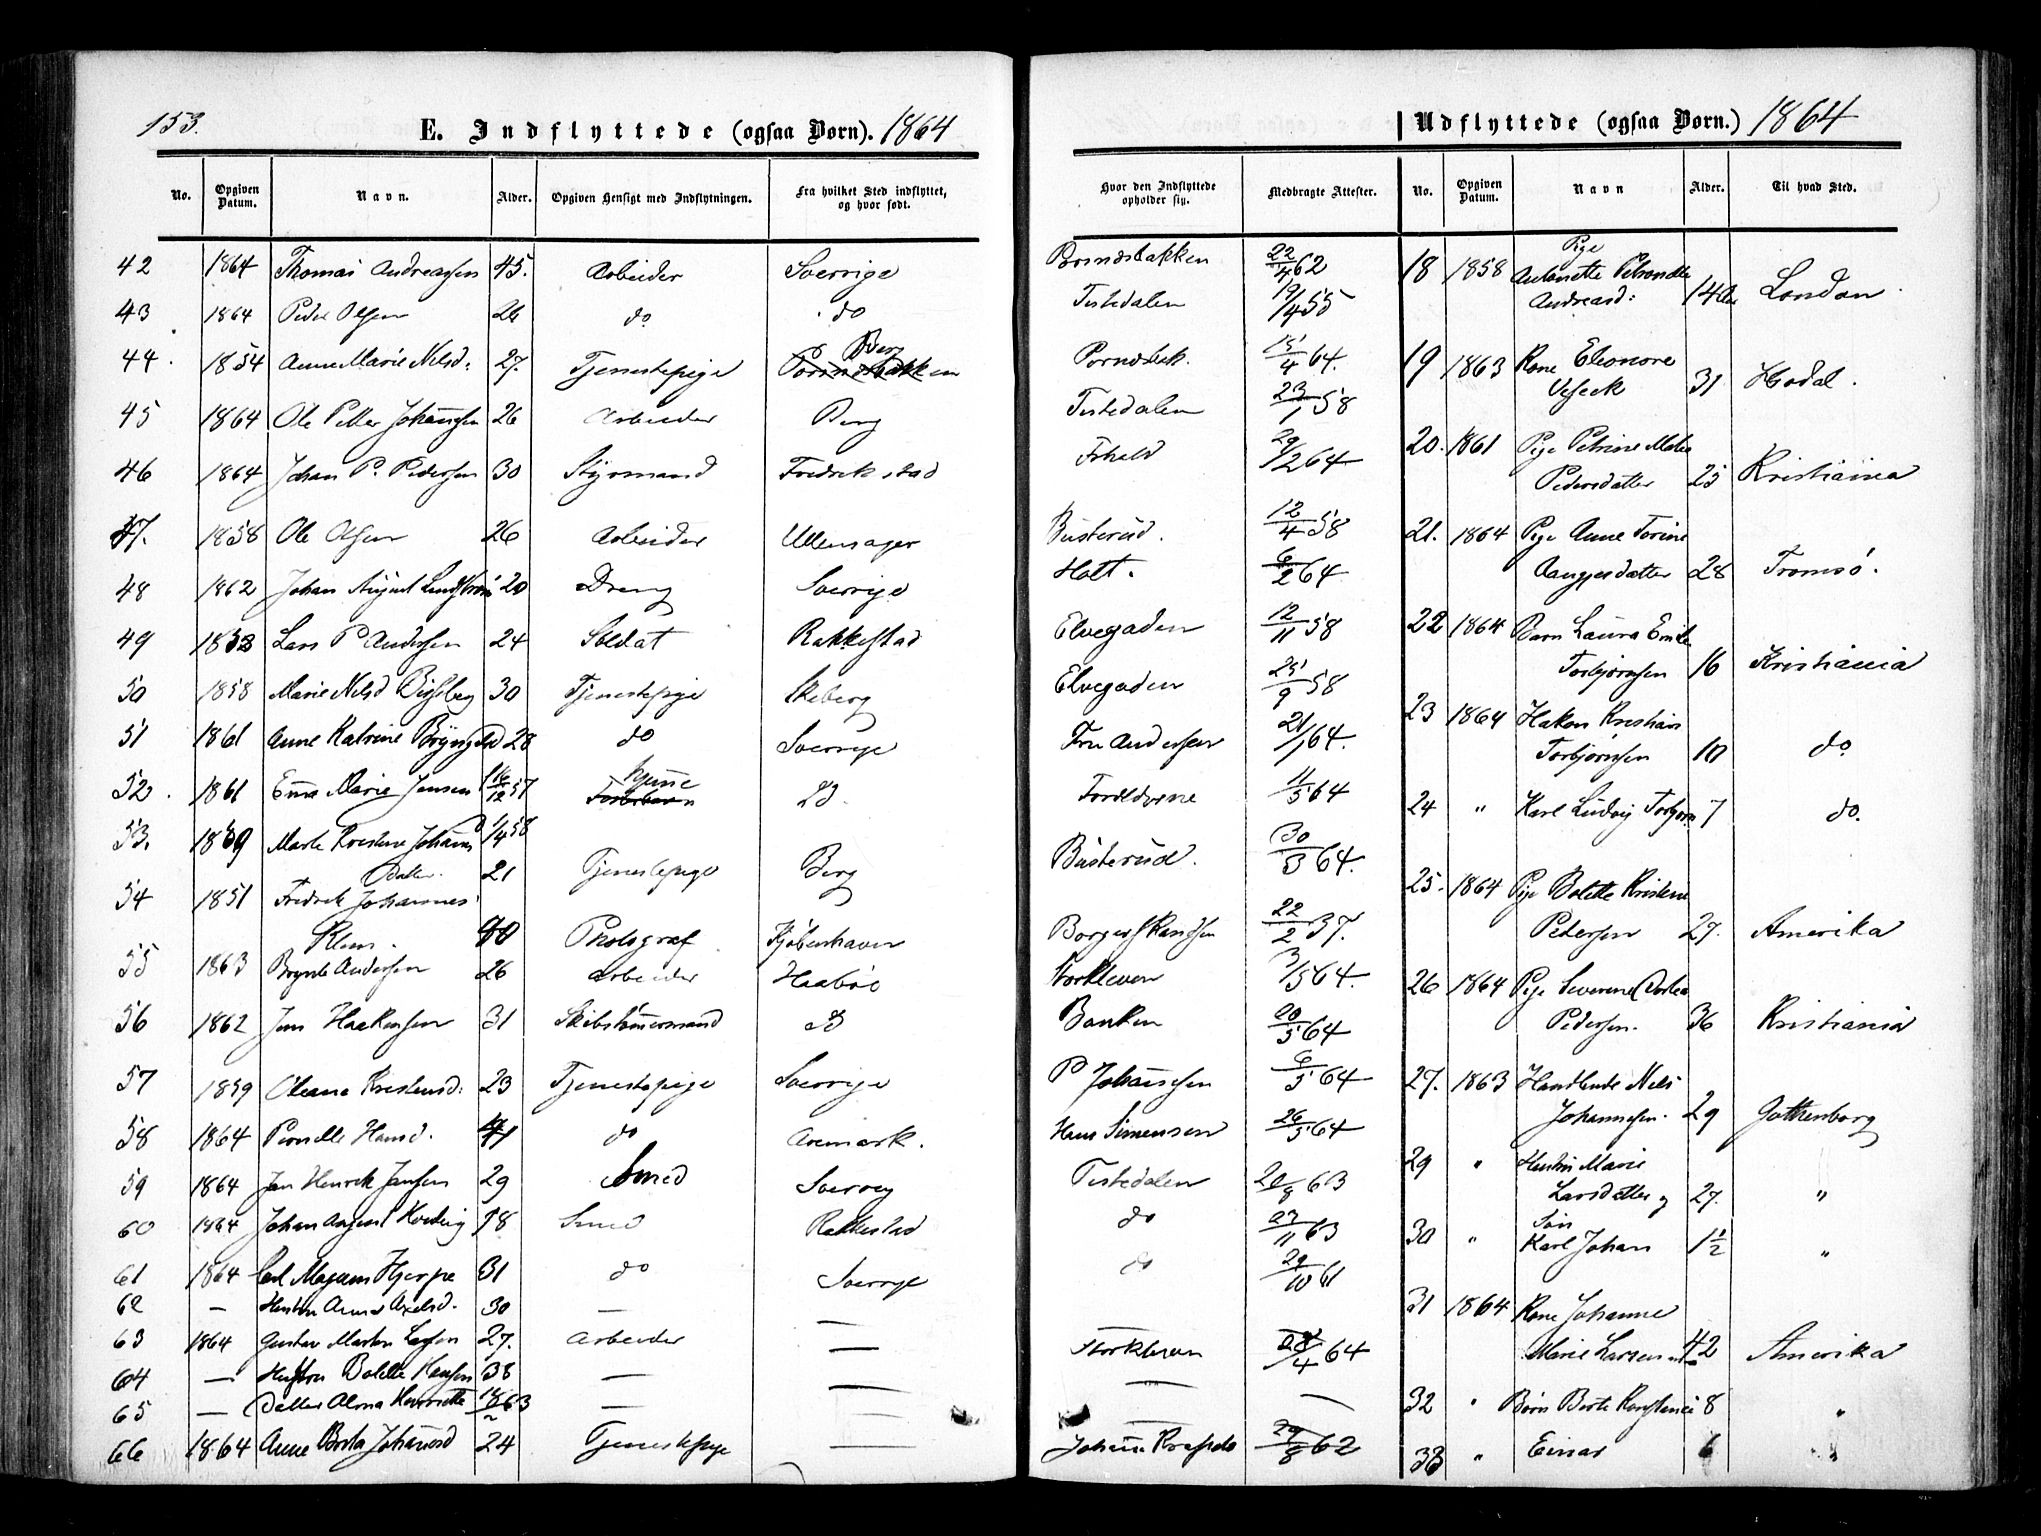 153.
E. Indflyttede (ogsaa Børn). 1864
No. Opgiven Datum. Navn. Alder. Opgiven Hensigt med Indflytningen. Fra hvilket Sted indflyttet, og hvor født.
42 1864 Thomas Andreassen 45. Arbeider Sverrige
43 1864 Peder Olsen 26 do do
44. 1854 Anne Marie Nelsd: 27. Tjenestepige Berg
45 1864 Ole Petter Johannsen 26 Arbeider Berg
46 1864 Johan P. Pedersen 30 Styrmand Fredrikstad
47. 1858 Ole Olsen 26 Arbeider Ullensager
48 1862 Johan August 20 Dreng Sverrige
49 Lars P Andersen 24 Soldat Rakkestad
50 1858 Marie Nelsd 30 Tjenestepige Skeberg
51 1861 Anne Katrine 28 do Sverrige
52. 1861 Marie Jensen 16/12 57 hjemme
53. Marte Kristine Johanns 1/4 58
Datter. 21 Tjenestepige Berg
54 1851 Fredrik Johannes
Klem. 40 Photograf Kjøbenhavn
55 1863 Andersen 26 Arbeider
56 1862 Jens Haakensen 31 Skibstømmermand
57 1859 Oleane Kristensd: 23 Tjenestepige Sverrige
58 1864 Pernille Hansd. do Aremark.
59 1864 Jan Henrik Jansen 29 Smed Sverrig
60 1864 Johan August 18 Smed Rakkestad
61 1864 Carl Magnus Hjerpe 31 do Sverrige
62 — Hustru Anna Axelsd. 30 —
63 1864 Gustav Larsen 27. Arbeider —
64 — Hustru Bolette Hansen 38 — —
65 — Datter Henriette 63 — —
66 1864 Anne Johannesd 24 Tjenestepige —
Udflyttede (ogsaa Børn.) 1864
Hvor den Indflyttede opholder sig. Medbragte Attester. No. Opgiven Datum. Navn Alder. Til hvad Sted.
22/4 62
Tistedalen 19/4 55
15/4 64.
Tistedalen 23/1 58
29/2 64
Busterud. 12/4 58
Holt. 6/2 64
Elvegaden 12/11 58
Elvegaden 25/9 58
Fru Andersen 21/1 64.
Forældrene 11/5 64
Busterud. 30/3 64.
22/2 37.
3/5 64.
Banken 20/5 64
P Johannesen 6/5 64
Hans Simensen 26/5 64
Tistedalen 20/8 63
do 23/11 63
do 29/10 61
— /4 64
— —
—
29/8 62
Pige
18 1858 Antonette
Andreasd: London
19 1863 Kone Eleonore
31 Hvidal.
20. 1861 Pige Petrine
Pedersdatter 25 Kristiania
21. 1864 Pige Anne Torine
28 Tromsø.
22 1864 Barn Laura
Torbjørnsen 16 Kristiania
23 1864 Hakon Kristian
Torbjørnsen 10 do
24 " Karl Ludvig 7 do.
25. 1864 Pige Bolette Kristine
Pedersen 27. Amerika
26 1864 Pige Severine
Pedersen. 36 Kristiania
27. 1863 Handlende Nels
Johannesen. 29 Gothenborg
29 " Hustru Marie
Larsdatter og 27. "
Søn
30 " Karl Johan 1½ "
31 1864 Kone Johanne
Marie Larsen 42 Amerika
32 " Børn Berte 8 "
33 " Einar 6 "